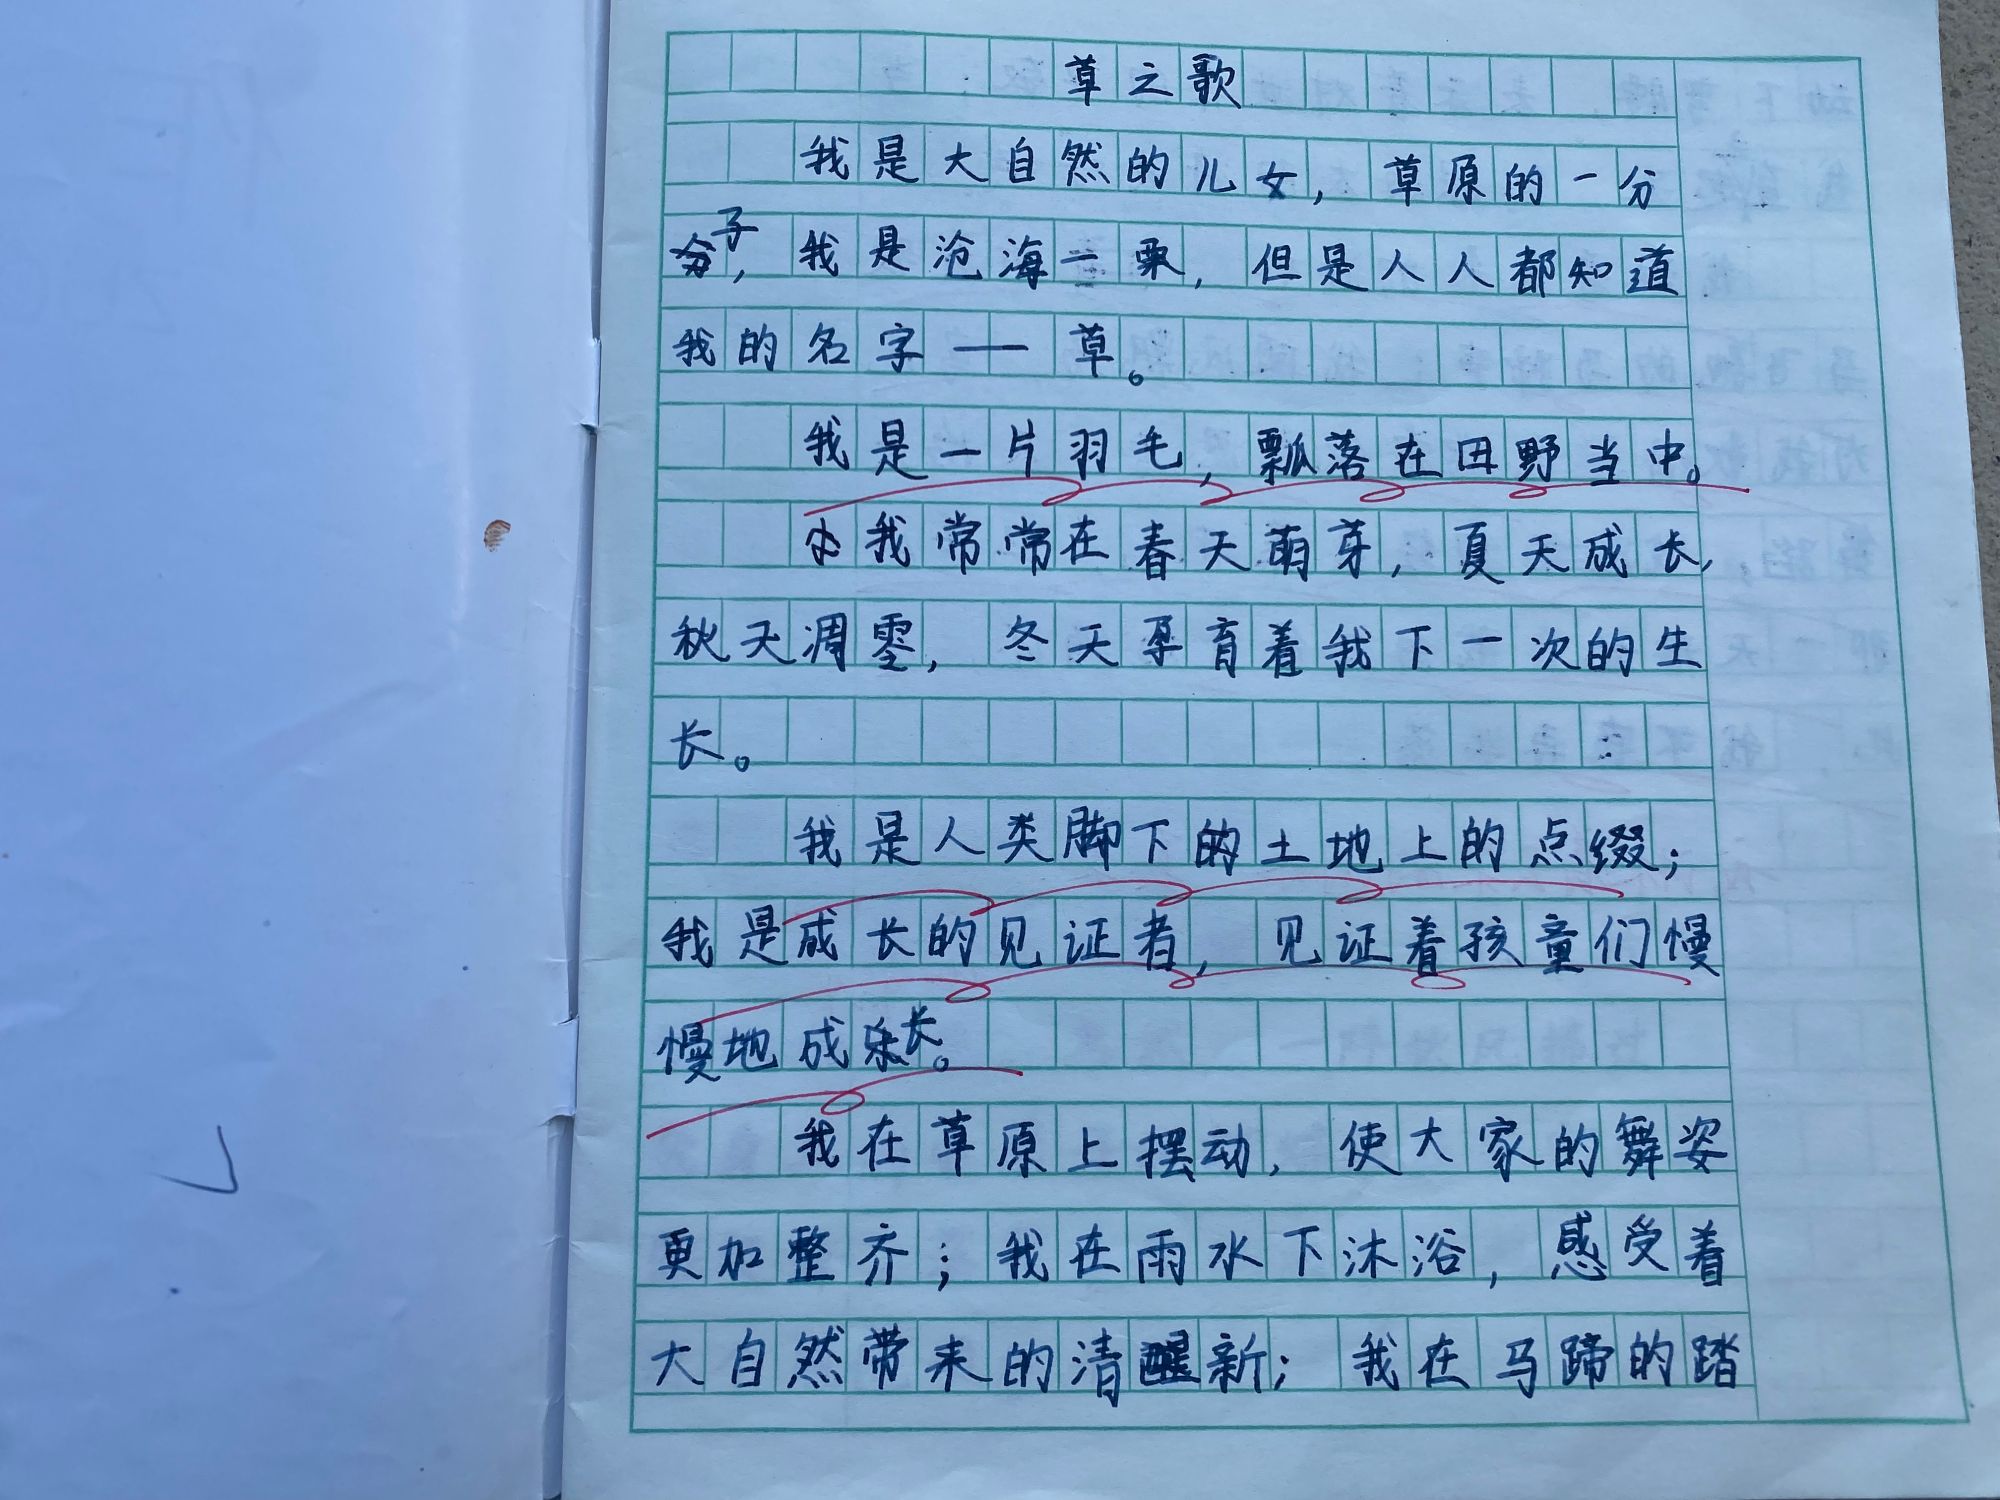 草之歌
我是大自然的儿女，草原的一分
子，我是沧海一栗，但是人人都知道
我的名字——草。
我是一片羽毛，瓢落在田野当中。
我常常在春天萌芽，夏天成长，
秋天凋零，冬天孕育着我下一次的生
长。
我是人类脚下的土地上的点缀；
我是成长的见证者，见证着孩童们慢
慢地成长。
我在草原上摆动，使大家的舞姿
更加整齐；我在雨水下沐浴，感受着
大自然带来的清新；我在马蹄的踏